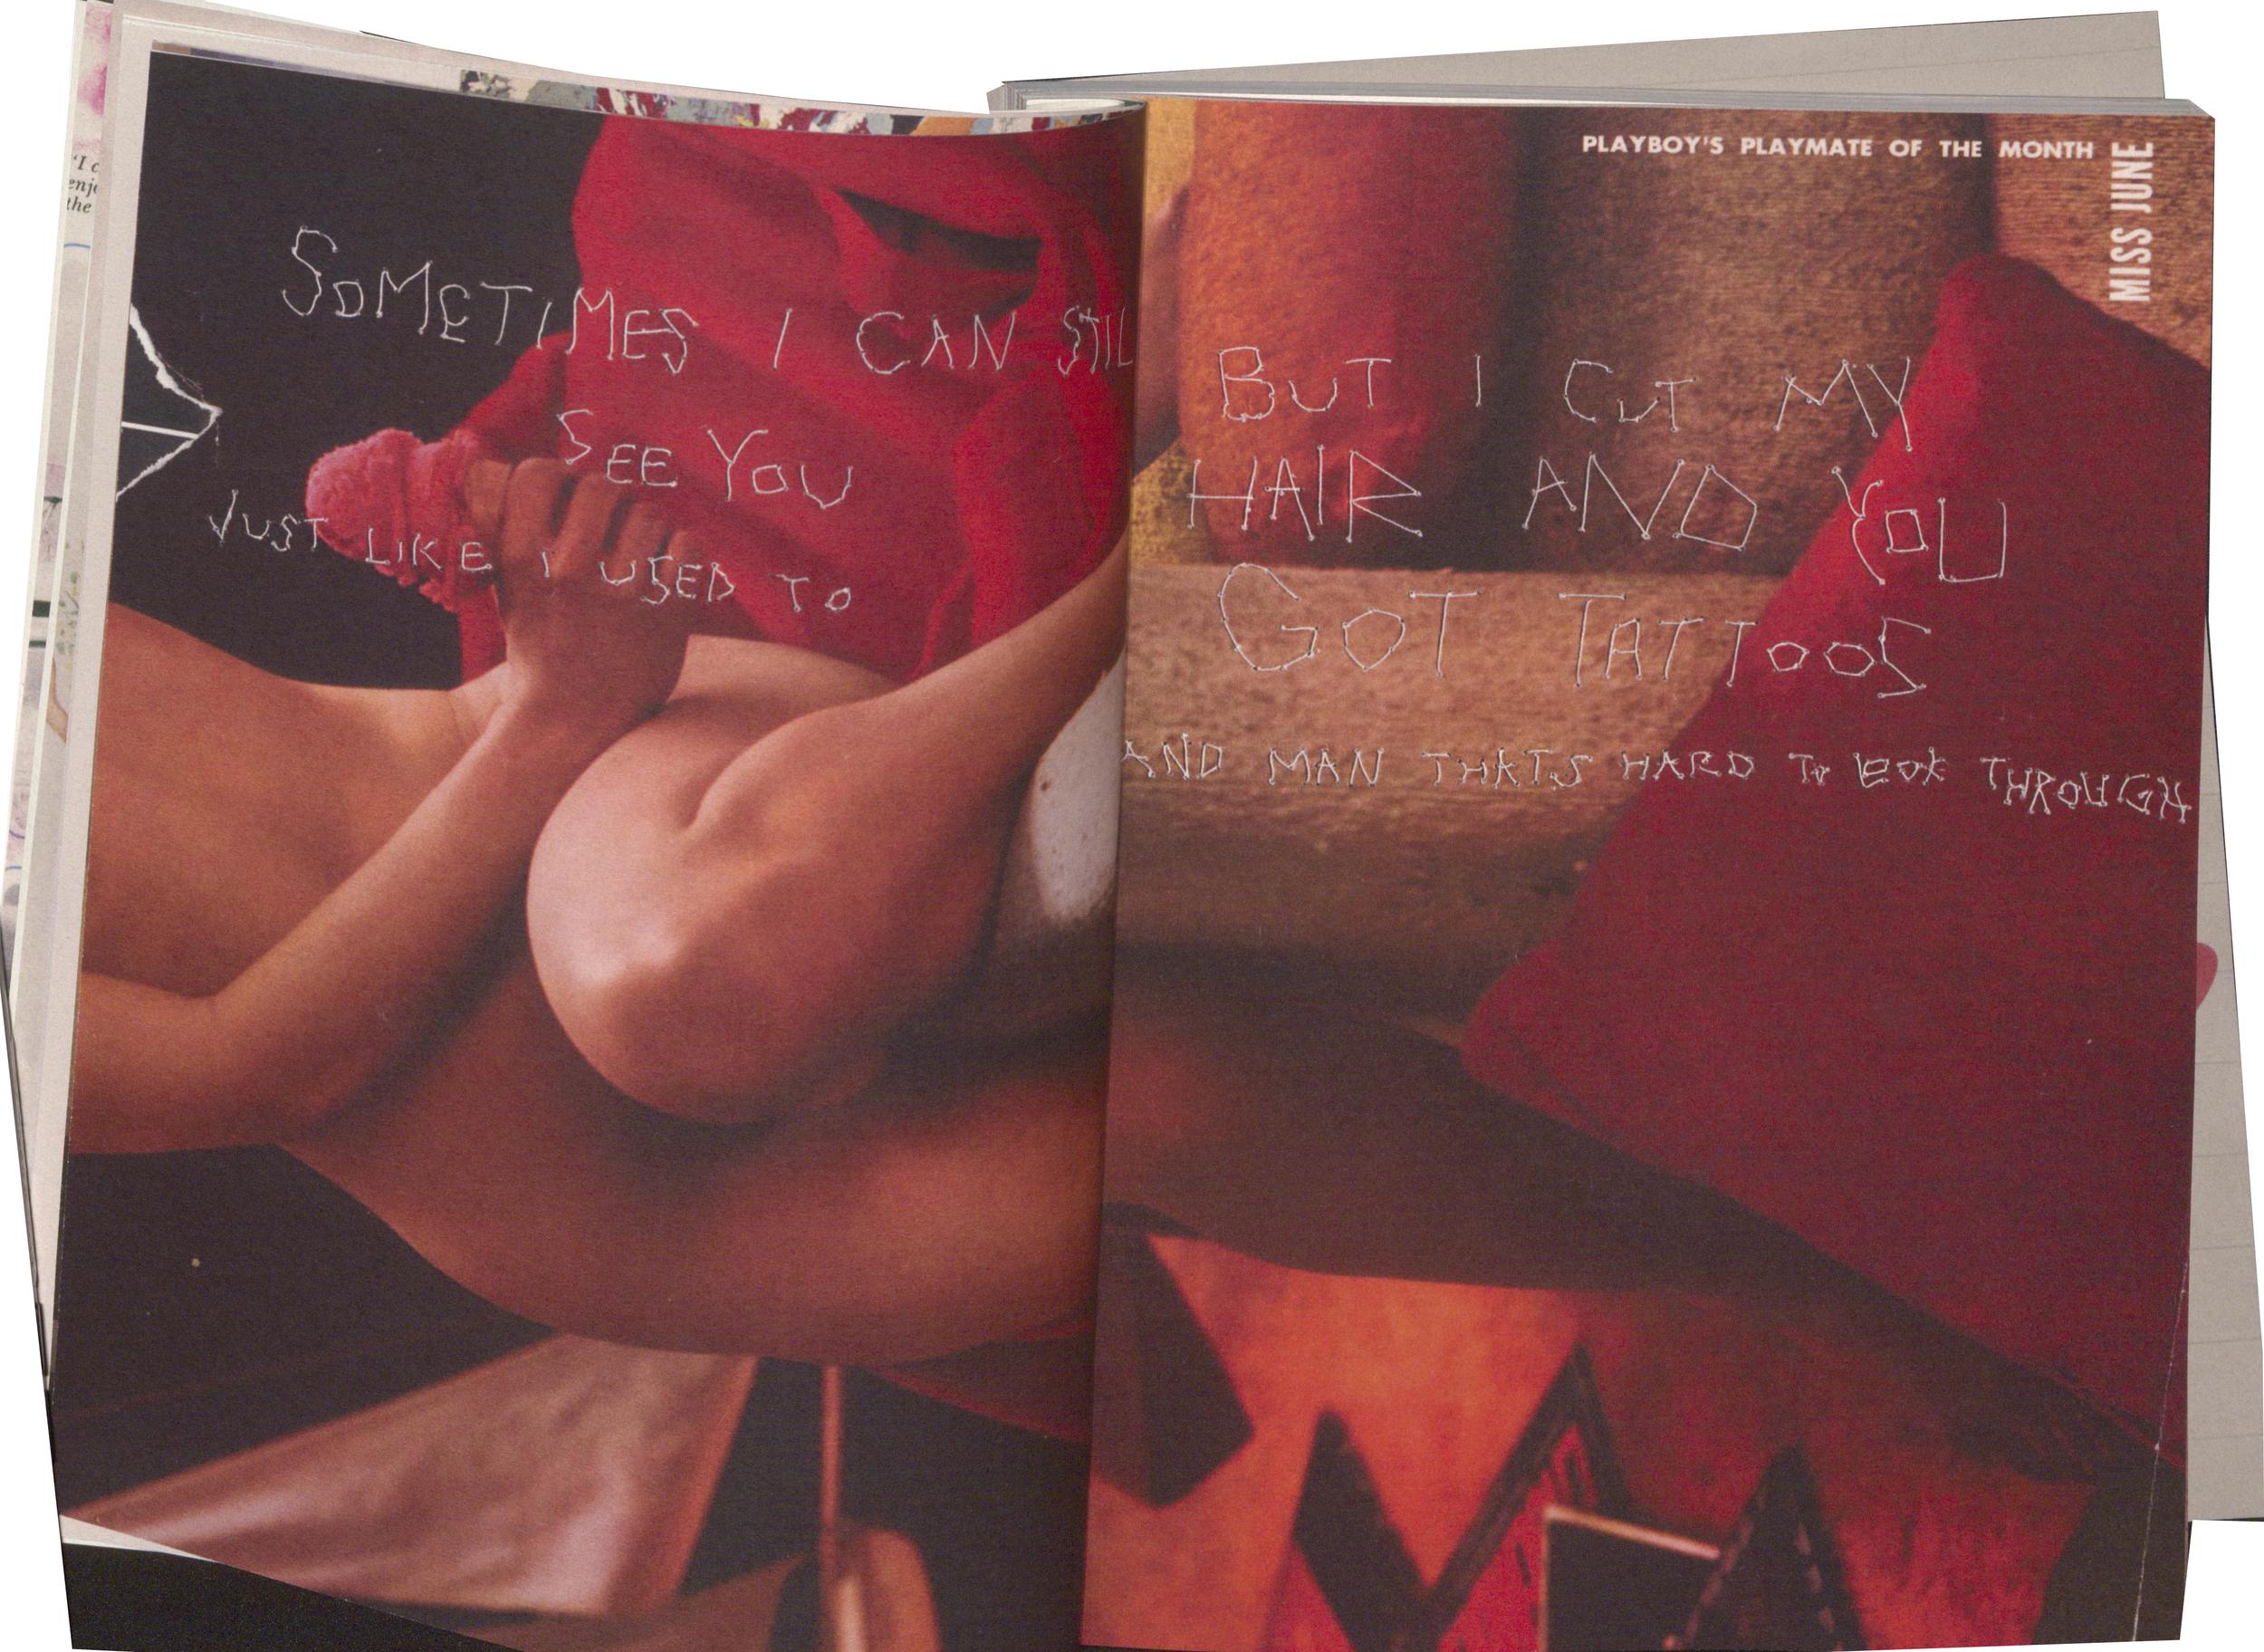 "I c
enj
the
SOMETIMES I CAN STIL
SEE YOU
JUST LIKE I USED TO
PLAYBOY'S PLAYMATE OF THE MONTH
MISS JUNE
BUT I CUT MY
HAIR AND YOU
GOT TATTOOS
AND MAN THATS HARD TO LOOK THROUGH